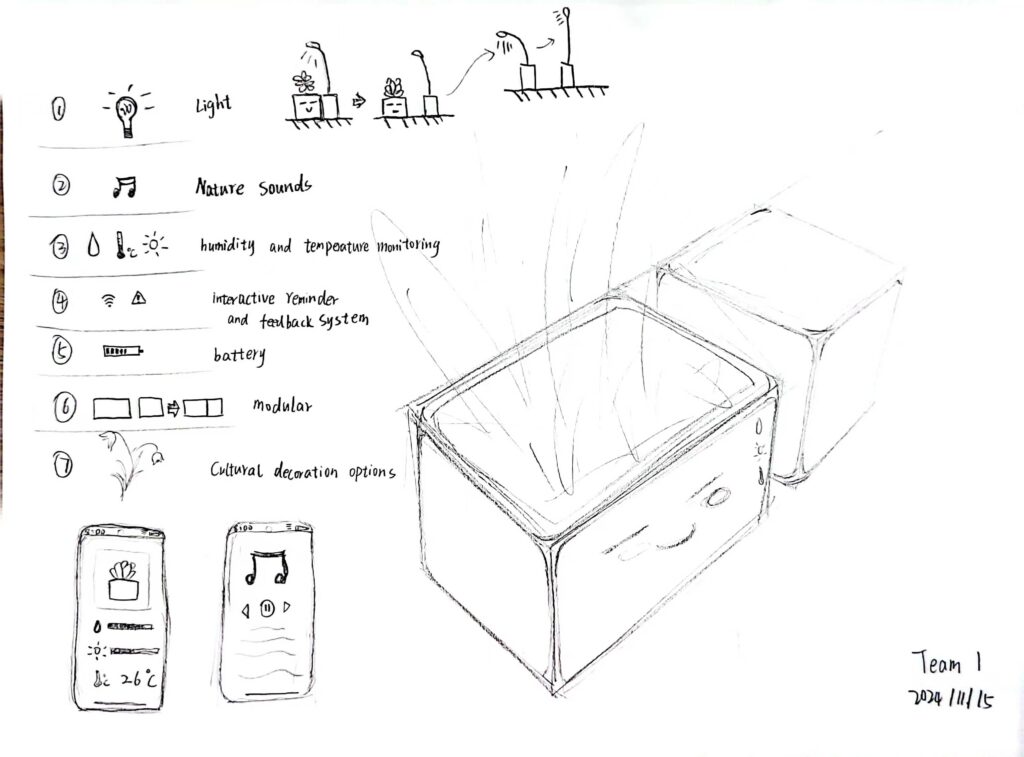 ① Light
② Nature sounds
③ °C humidity and tempeature monitoring
④ interactive reminder
and feedback system
⑤ battery
⑥ modular
⑦ Cultural decoration options
°C
26°C
Team 1
2024/11/15